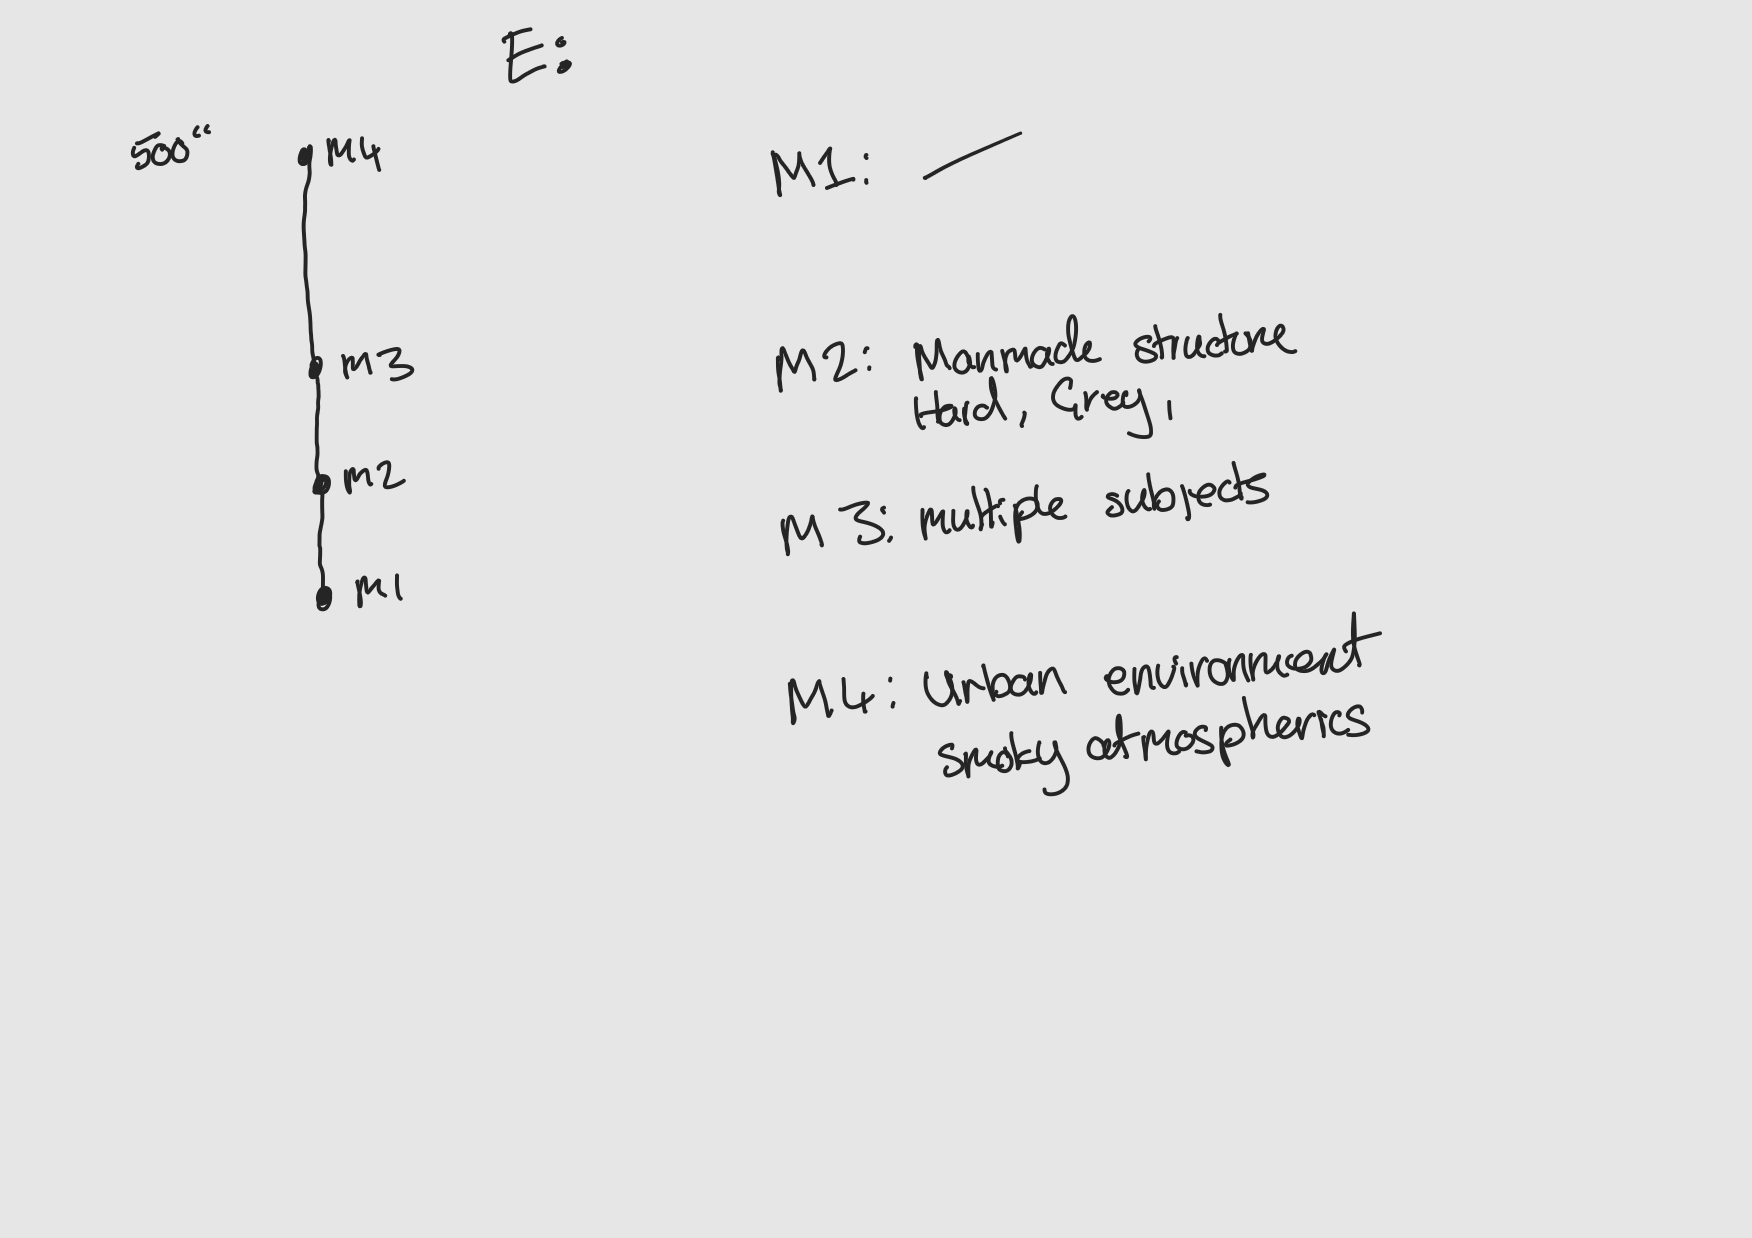 E:
500"
M4
M3
M2
M1
M1:
M2: Manmade structure
Hard, Grey,
M3: multiple subjects
M4: Urban environment
smoky atmospherics